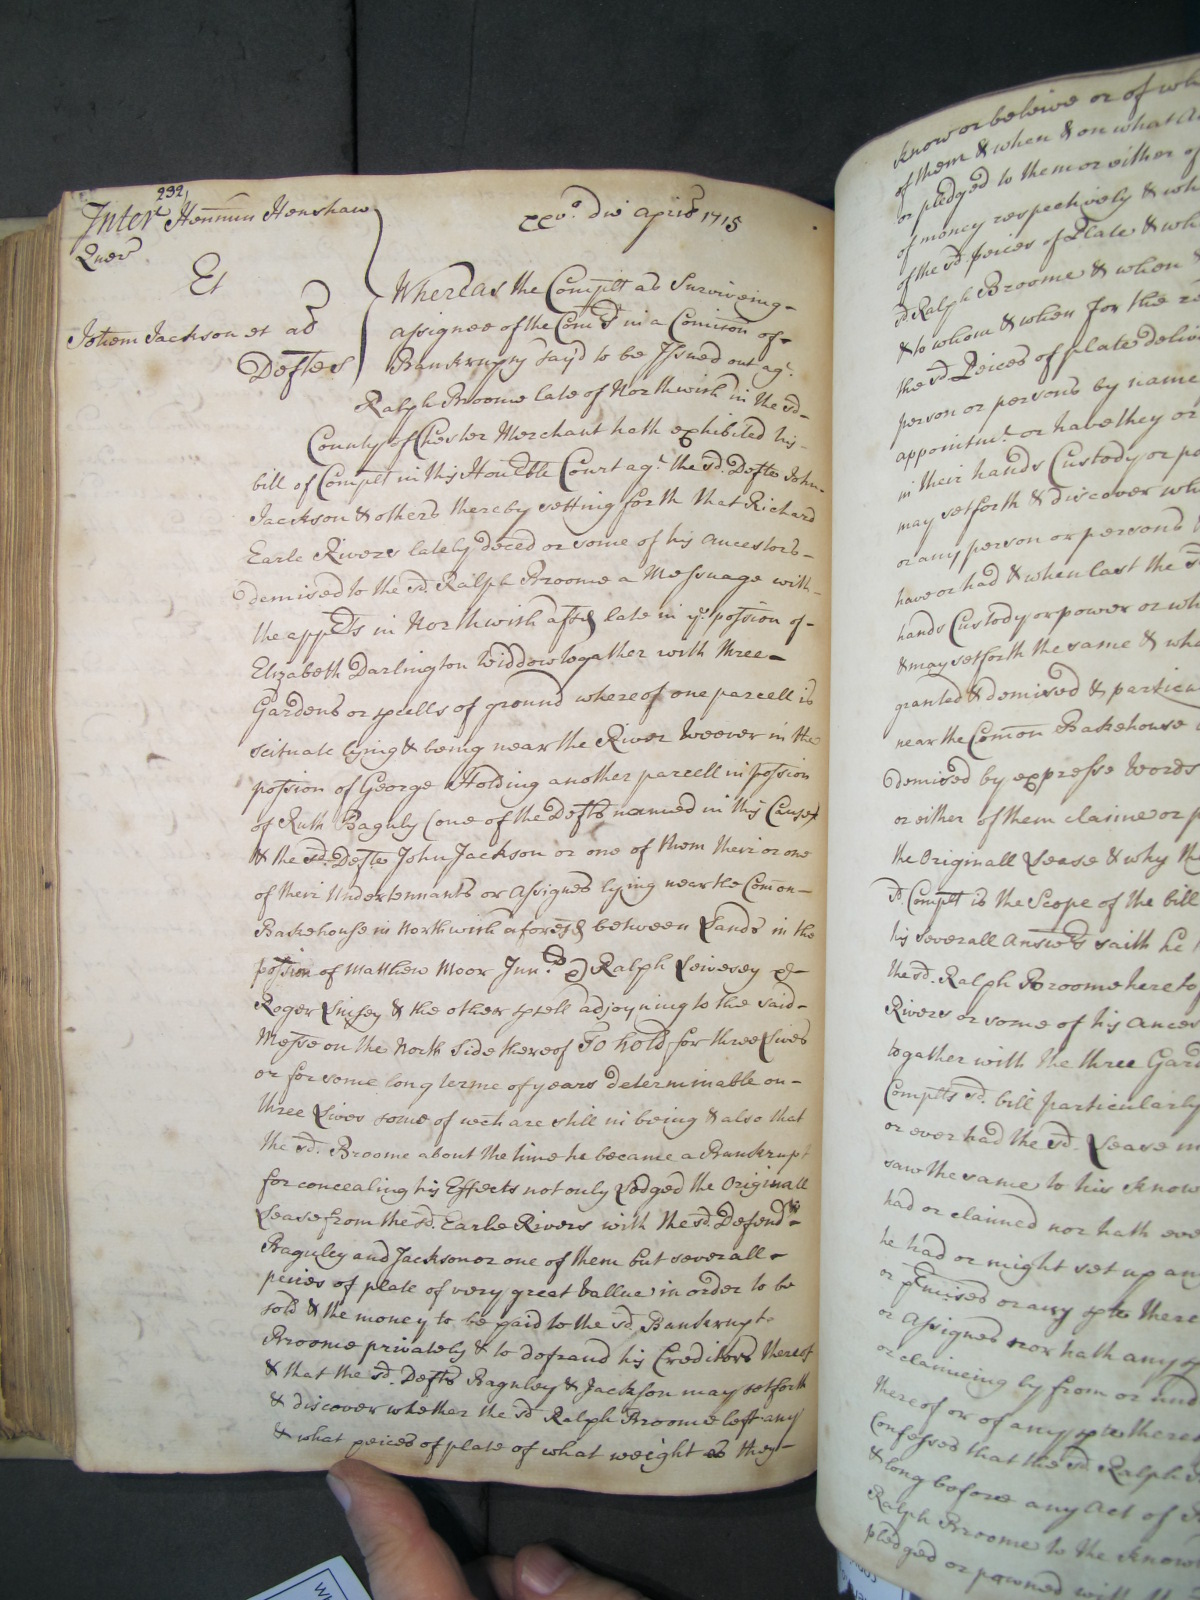 232
Inter Henricum Henshaw
Quer
xxv.o die Aprilis 1715
Et
Johem Jackson et al
Deftes
Whereas the Complt as Surviveing
assignee of the Comrs in a Comicon of
Bankrupcy say'd to be Issued out agt.
Ralph Broome late of Northwich in the sd
County of Chester Merchant hath exhibited his
bill of Complt in this Honble Court agt. the sd. Defts John
Jackson & others thereby setting forth that Richard
Earle Rivers lately deced or some of his Ancestors
demised to the sd. Ralph Broome a Messuage with
the appts in Northwich afsd late in ye possion of
Elizabeth Darlington Widdow togather with three
Gardens or pcells of ground whereof one parcell is
scituate lying & being near the River Weever in the
possion of George Holding another parcell in possion
of Ruth Baguly (one of the Defts named in this Cause)
& the sd. Defte John Jackson or one of them their or one
of their Undertennants or Assignes lying near the Comon
Bakehouse in Northwich aforesd between Lands in the
possion of Matthew Moor Junr. Ralph Leivesey &
Roger Linsey & the other pcell adjoyning to the said
Messe on the North Side thereof To hold for three Lives
or for some long terme of years determinable on
three Lives some of wch are still in being & also that
the sd. Broome about the time he became a Bankrupt
for concealing his Effects not only Lodged the Originall
Lease from the sd. Earle Rivers with the sd. Defendts
Baguley and Jackson or one of them but severall
peices of plate of very great vallue in order to be
sold & the money to be paid to the sd. Bankrupt
Broome privately & to defraud his Creditors thereof
& that the sd. Defts Baguley & Jackson may setforth
& discover whether the sd Ralph Broome left any
& what peices of plate of what weight they
know or beleive or of wh
of them & when & on what
or pledged to them or either of
of money respectively & wh
of the sd. peices of Plate & wh
sd. Ralph Broome & when
& to whom & when for the
the sd Peices of plate deliv
person or persons by name
appointmt. or have they or
in their hands Custody or po
may setforth & discover wh
or any person or persons
have or had & when last the
hands Custody or power or wh
& may setforth the same & wha
granted & demised & particu
near the Comon Bakehouse
demised by expresse Words
or either of them claime or
the Originall Lease & why the
sd. Complt is the Scope of the bill
his severall Answers saith he
the sd. Ralph Broome hereto
Rivers or some of his Ances
togather with the three Gard
Complts sd. bill particularly
or ever had the sd. Lease in
saw the same to his know
had or claimed nor hath eve
he had or might set up any
or pmised or any pte there
or Assignes nor hath any
or claimeing by from or und
thereof or of any pte there
Confesses that the sd Ralph
& long before any Act of
Ralph Broome to the know
pledged or pawned with